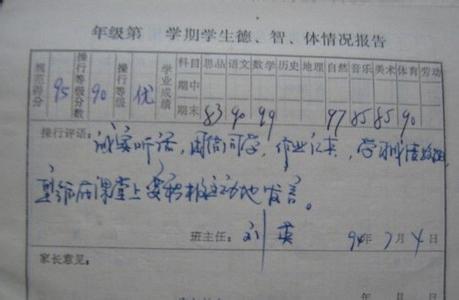 年级第 学期学生德、智、体情况报告
规范得分 95 操行等级分数 90 操行等级 优 学业成绩 科目 思品 语文 数学 历史 地理 自然 音乐 美术 体育 劳动
期中
期末 83 90 99 97 85 85 90
操行评语: 诚实听话,团结同学,作业认真,学习
课堂上要积极主动地发言。
班主任: 刘英 94年7月4日
家长意见:
年 月 日